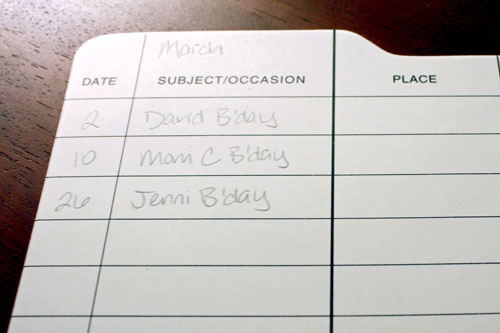 March
DATE SUBJECT/OCCASION PLACE
2 David B'day
10 Mom C B'day
26 Jenni B'day